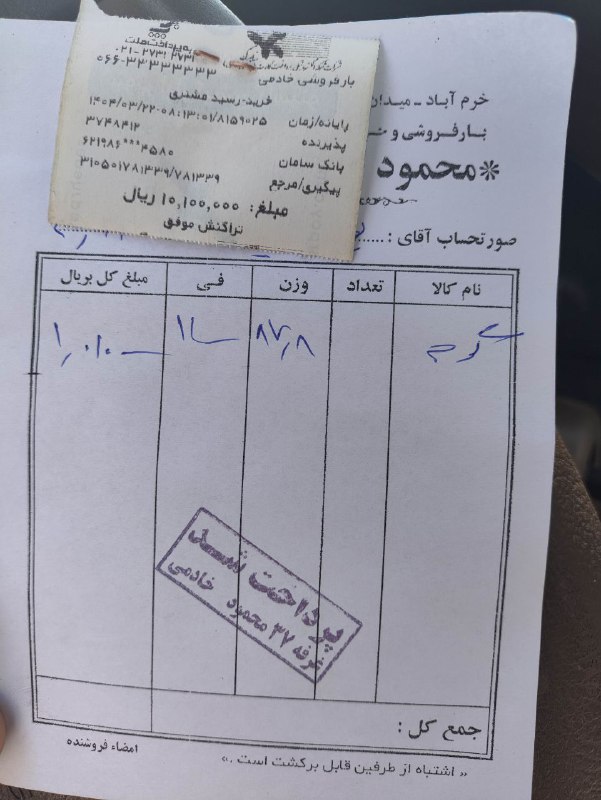 به‌پرداخت ملت
۰۲۱-۲۷۳۱ ۲۷۳۱
بارفروشی خادمی ۰۶۶-۳۳۳۳۳۳۳۳
خرید-رسید مشتری
رایانه/زمان ۱۴۰۴/۰۳/۲۲-۰۸:۱۳:۰۱/۸۱۵۹۰۲۵
پذیرنده ۳۷۴۸۴۱۲
بانک سامان ۶۲۱۹۸۶***۴۵۸۰
پیگیری/مرجع ۳۱۰۵۰۱۷۸۱۳۳۹/۷۸۱۳۳۹
مبلغ: ۱۰,۱۰۰,۰۰۰ ریال
تراکنش موفق
خرم آباد ـ میدان
بـارفـروشی و
*محمود
صورتحساب آقای :
نام کالا تعداد وزن فـی مبلغ کل بریال
۸۷٫۸
پرداخت شد
غرفه ۳۷ محمود خادمی
جمع کل :
امضاء فروشنده
« اشتباه از طرفین قابل برگشت است .»